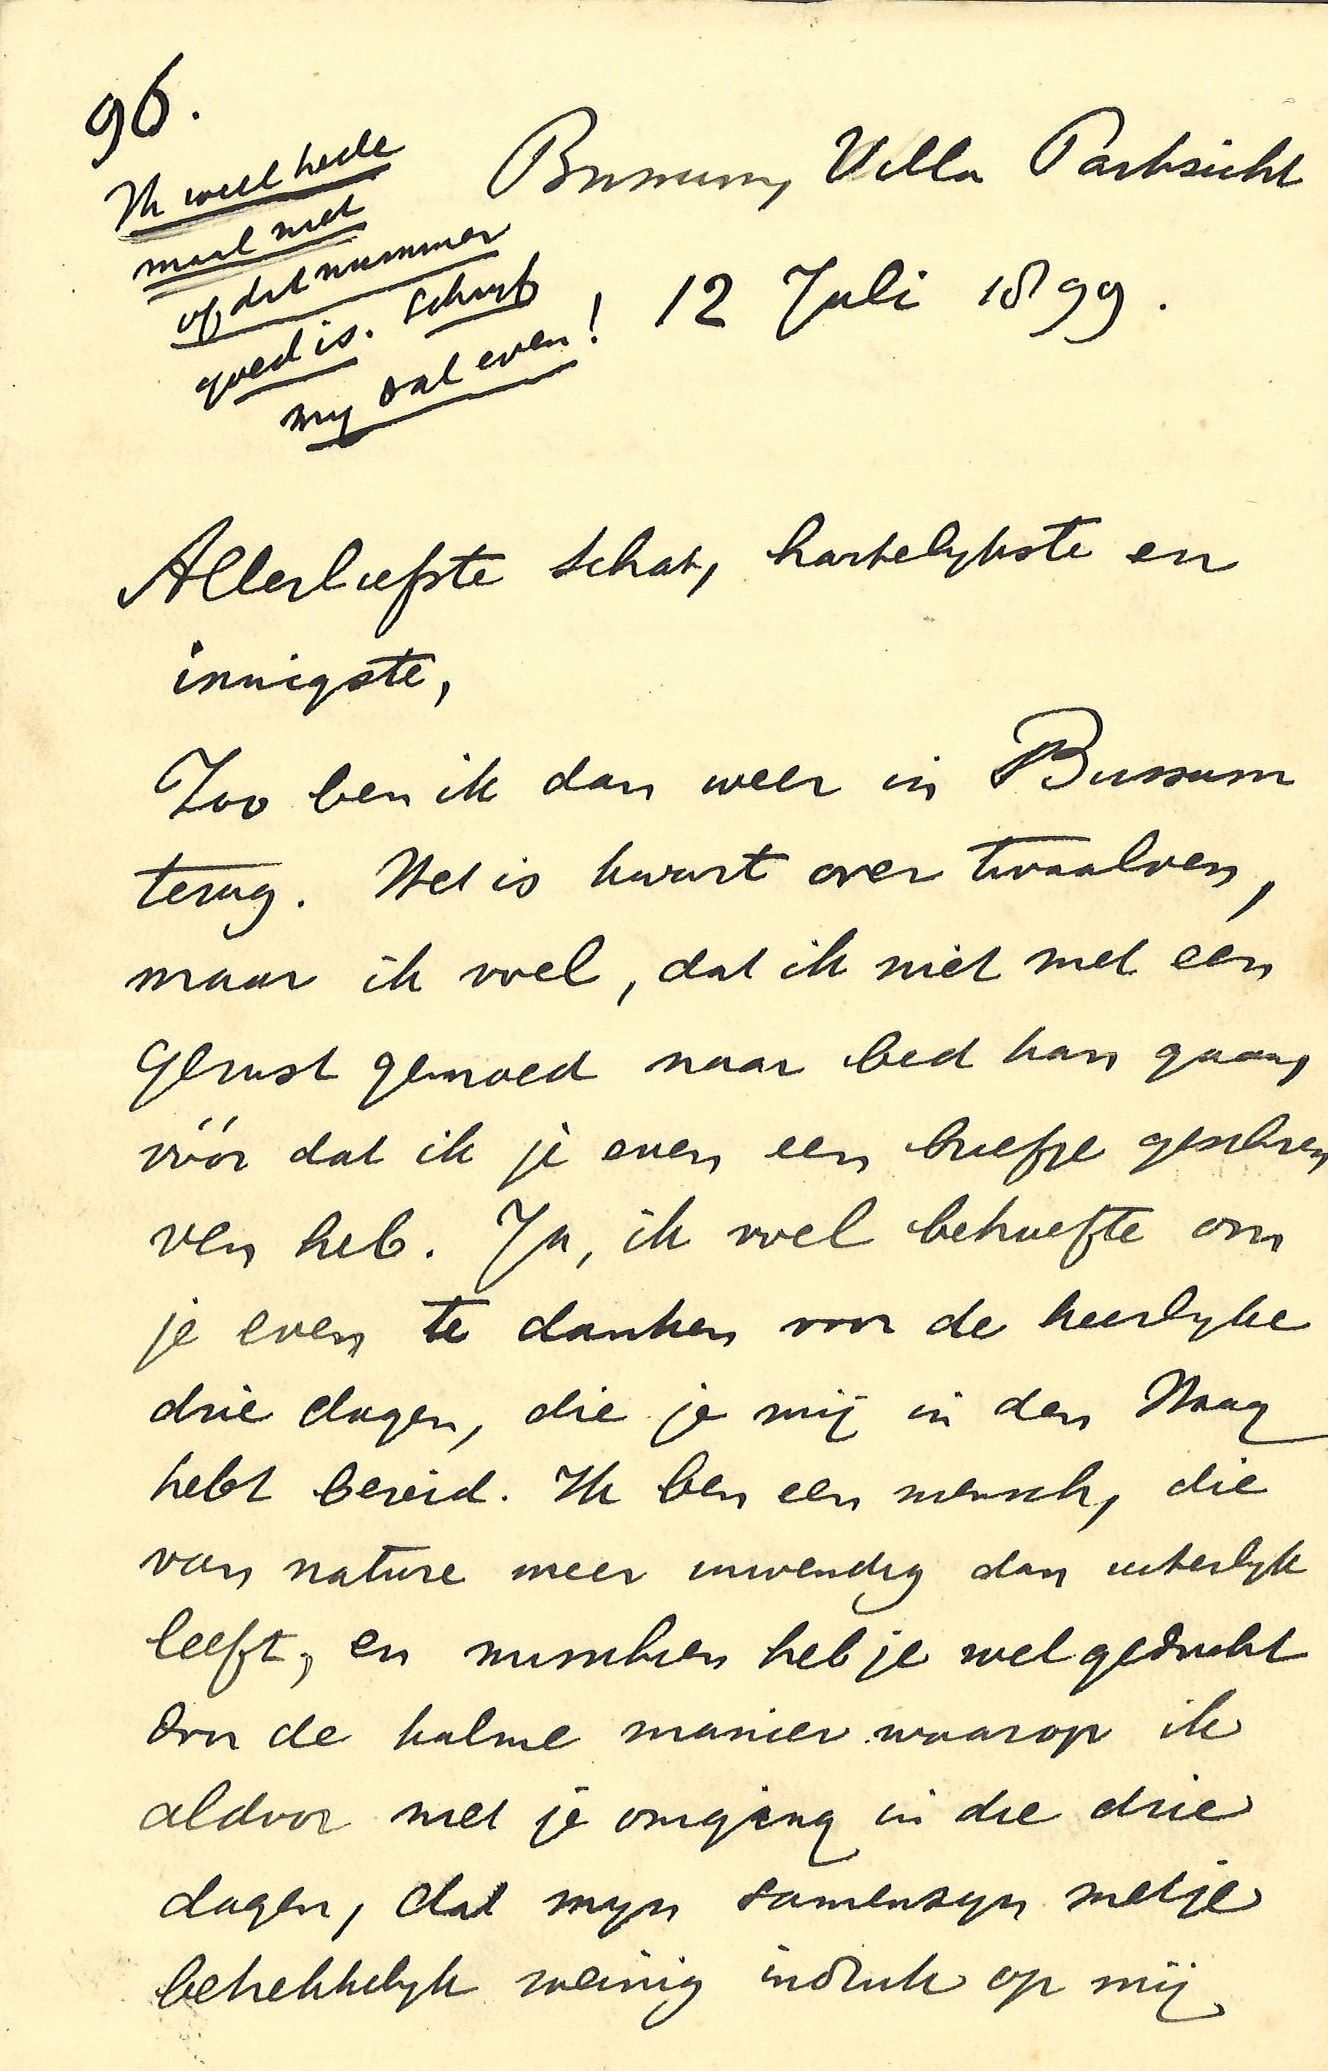 96.
Ik weet heele
maal niet
of dit nummer
goed is. Schrijf
mij dat even!
Bussum, Villa Parkzicht
12 Juli 1899.
Allerliefste schat, hartelijkste en
innigste,
Zoo ben ik dan weer in Bussum
terug. Het is kwart over twaalven,
maar ik voel, dat ik niet met een
gerust gemoed naar bed kan gaan,
vóór dat ik je even een briefje geschre
ven heb. Ja, ik voel behoefte om
je even te danken voor de heerlijke
drie dagen, die je mij in den Haag
hebt bereid. Ik ben een mensch, die
van nature meer inwendig dan uiterlijk
leeft, en misschien heb je wel gedacht
door de kalme manier waarop ik
aldoor met je omging in die drie
dagen, dat mijn samenzijn met je
betrekkelijk weinig indruk op mij